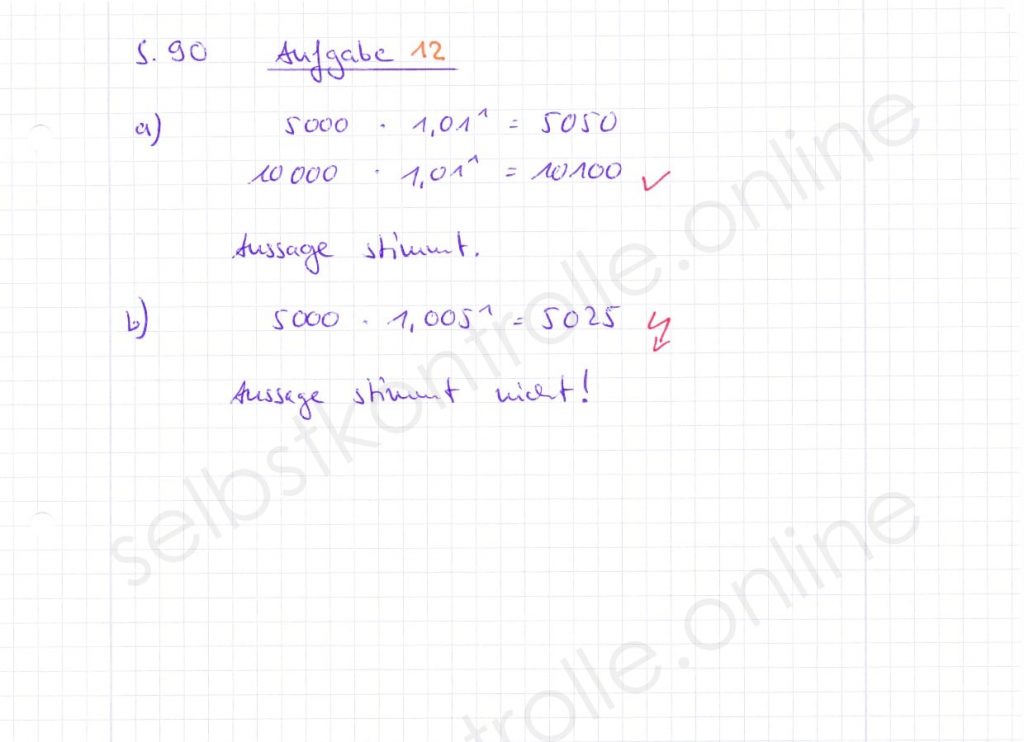 S. 90 Aufgabe 12
a) 5000 · 1,01¹ = 5050
10 000 · 1,01¹ = 10100 ✓
Aussage stimmt.
b) 5000 · 1,005¹ = 5025 ↯
Aussage stimmt nicht!
selbstkontrolle.online
trolle.online